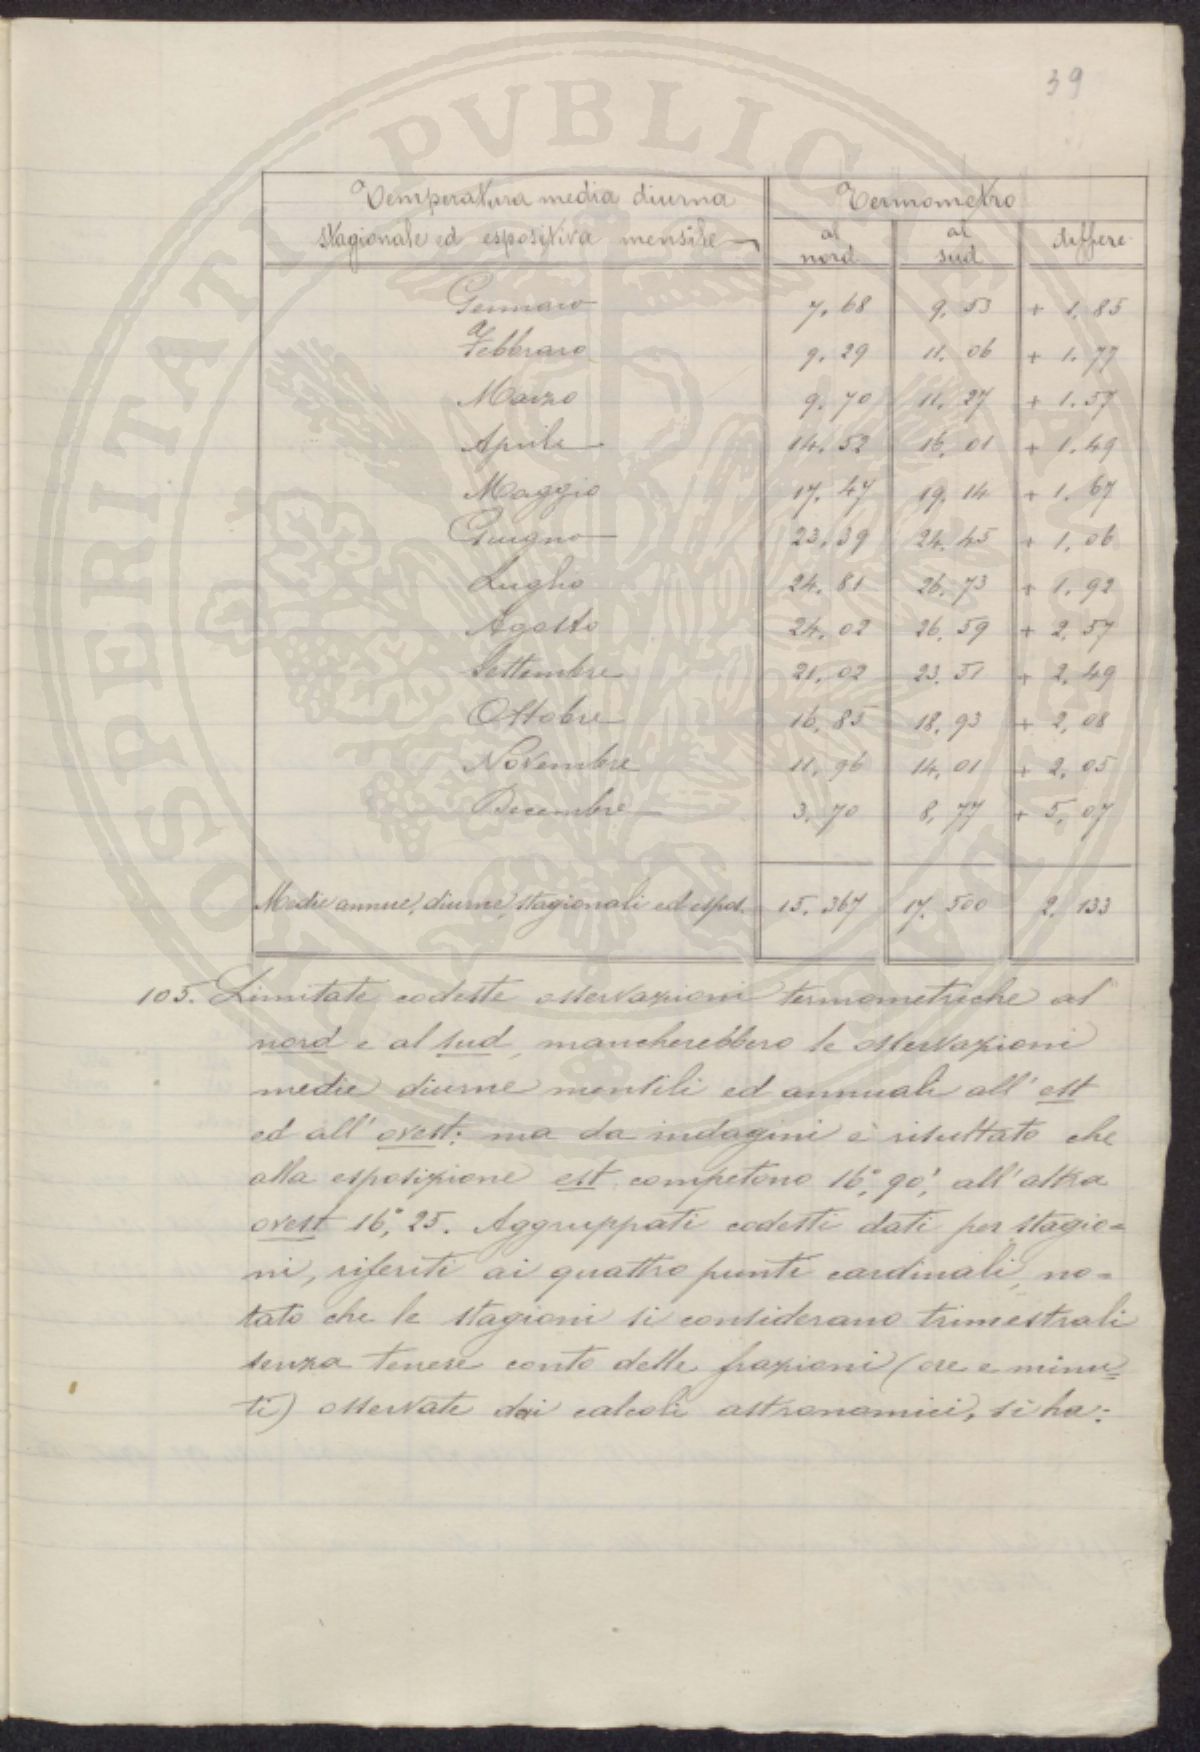 39
Temperatura media diurna Termometro
stagionale ed espositiva mensile al nord al sud differe.
Gennaro 7,68 9,53 + 1,85
Febbraro 9,29 11,06 + 1,77
Marzo 9,70 11,27 + 1,57
Aprile 14,52 16,01 + 1,49
Maggio 17,47 19,14 + 1,67
Giugno 23,39 24,45 + 1,06
Luglio 24,81 26,73 + 1,92
Agosto 24,02 26,59 + 2,57
Settembre 21,02 23,51 + 2,49
Ottobre 16,85 18,93 + 2,08
Novembre 11,96 14,01 + 2,05
Decembre 3,70 8,77 + 5,07
Medie annue, diurne, stagionali ed espos. 15,367 17,500 2,133
105. Limitate codeste osservazioni termometriche al
nord e al sud, mancherebbero le osservazioni
medie diurne mensili ed annuali all' est
ed all' ovest: ma da indagini è risultato che
alla esposizione est competono 16°,90', all'altra
ovest 16°,25. Aggruppati codesti dati per stagio=
ni, riferiti ai quattro punti cardinali, no=
tato che le stagioni si considerano trimestrali
senza tenere conto delle frazioni (ore e minu=
ti) osservate dai calcoli astronomici, si ha: